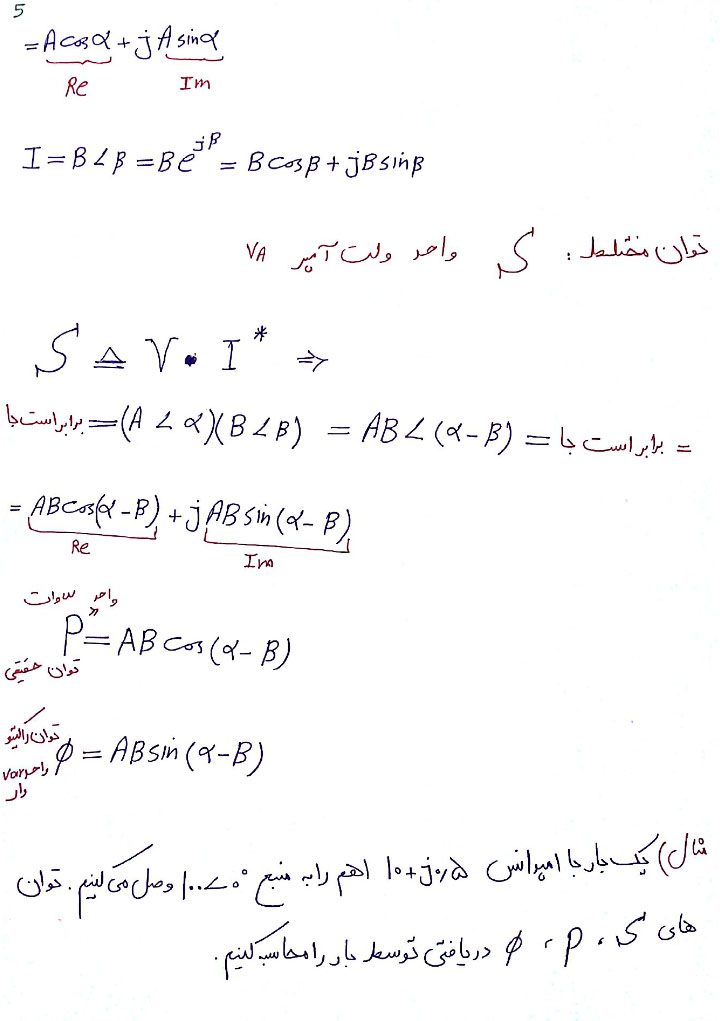 5
= A cos α + j A sin α
Re Im
I = B ∠ β = B e^jβ = B cos β + j B sin β
توان مختلط : S واحد ولت آمپر VA
S ≜ V • I* ⇒
برابر است با = (A ∠ α)(B ∠ β) = AB ∠ (α - β) = برابر است با =
= AB cos(α - β) + j AB sin(α - β)
Re Im
واحد وات
P = AB cos (α - β)
توان حقیقی
توان راکتیو
φ = AB sin (α - β)
واحد var
وار
مثال) یک بار با امپدانس ۱۰+j۰٫۵ اهم را به منبع ۱۰۰∠۰° وصل می کنیم. توان
های S ، P ، φ دریافتی توسط بار را محاسبه کنیم.